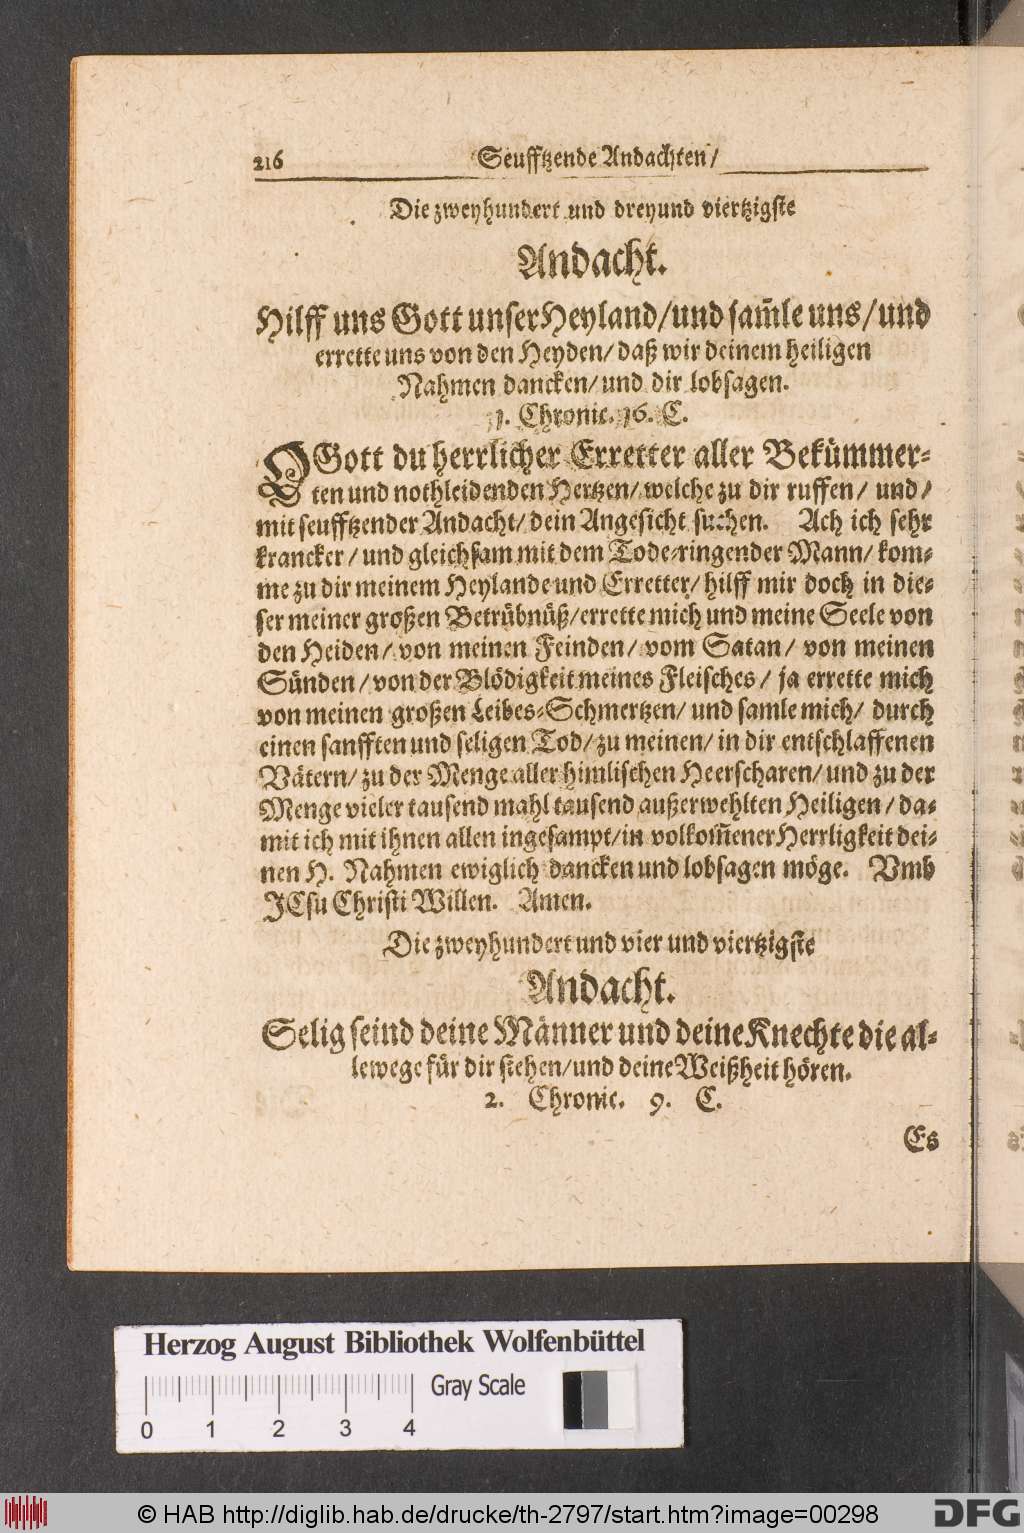 216 Seufftzende Andachten/
Die zweyhundert und dreyund viertzigste
Andacht.
Hilff uns Gott unser Heyland/und sam̃le uns/und
errette uns von den Heyden/ daß wir deinem heiligen
Nahmen dancken/ und dir lobsagen.
1. Chronic. 16. C.
O Gott du herrlicher Erretter aller Bekümmer-
ten und nothleidenden Hertzen/ welche zu dir ruffen/ und/
mit seufftzender Andacht/ dein Angesicht suchen. Ach ich sehr
krancker/ und gleichsam mit dem Tode-ringender Mann/ kom-
me zu dir meinem Heylande und Erretter/ hilff mir doch in die-
ser meiner großen Betrübnüß/ errette mich und meine Seele von
den Heiden/ von meinen Feinden/ vom Satan/ von meinen
Sünden/ von der Blödigkeit meines Fleisches/ ja errette mich
von meinen großen Leibes-Schmertzen/ und samle mich/ durch
einen sanfften und seligen Tod/ zu meinen/ in dir entschlaffenen
Vätern/ zu der Menge aller himlischen Heerscharen/ und zu der
Menge vieler tausend mahl tausend außerwehlten Heiligen/ da-
mit ich mit ihnen allen ingesampt/ in volkom̃ener Herrligkeit dei-
nen H. Nahmen ewiglich dancken und lobsagen möge. Vmb
JEsu Christi Willen. Amen.
Die zweyhundert und vier und viertzigste
Andacht.
Selig seind deine Männer und deine Knechte die al-
lewege für dir stehen/und deine Weißheit hören.
2. Chronic. 9. C.
Es
Herzog August Bibliothek Wolfenbüttel
Gray Scale
0 1 2 3 4
© HAB http://diglib.hab.de/drucke/th-2797/start.htm?image=00298
DFG